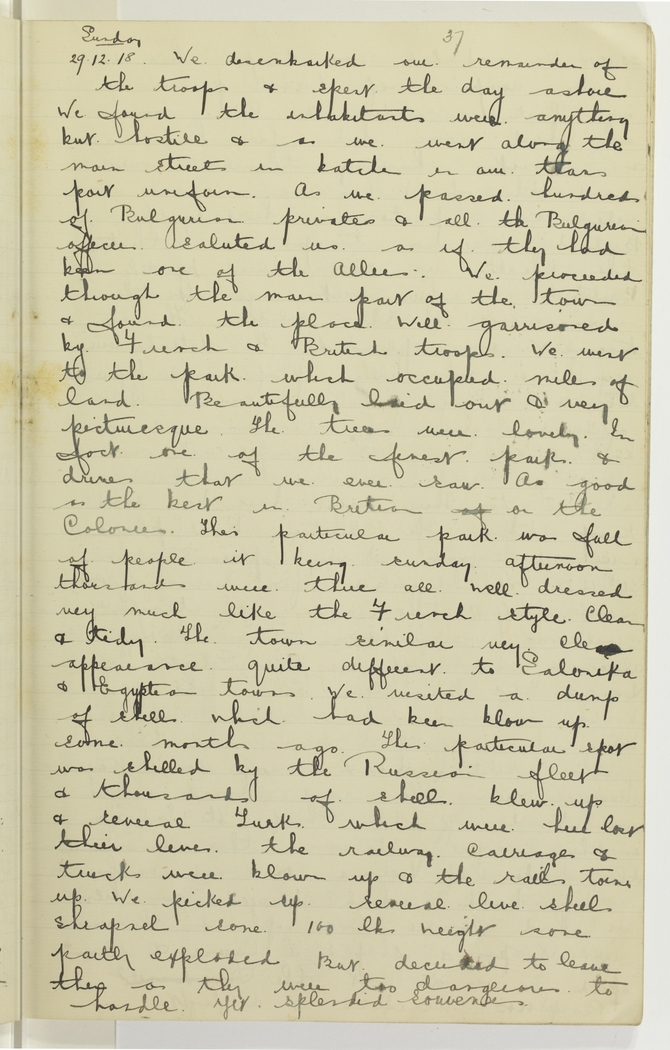 Sunday 37
29.12.18. We disembarked our remainder of
the troops & spent the day ashore
We found the inhabitants were anything
but hostile & as we went along the
main streets in batches in our trans
port uniform. As we passed hundreds
of Bulgurian privates & all the Bulgurian
officers saluted us as if they had
been one of the Allies. We proceeded
through the main part of the town
& found the place well garrisoned
by French & British troops. We went
to the park which occupied miles of
land. Beautifully laid out & very
picturesque. The trees were lovely. In
fact one of the finest parks &
drives that we ever saw. As good
as the best in Britian of or the
Colonies. This particular park was full
of people it being sunday afternoon
thousands were there all well dressed
very much like the French style. Clean
& tidy. The town similar very clean
appearance quite different to Salonika
& Egyptian towns. We visited a dump
of shells which had been blown up
some months ago. This particular spot
was shelled by the Russian fleet
& thousands of shells blew up
& several Turks which were here lost
their lives. the railway carriages &
trucks were blown up & the rails torn
up. We picked up several live shells
shrapnel some 100 lbs weight some
partly exploded But decided to leave
them as they were too dangerous to
handle. Yet splendid souvenirs.